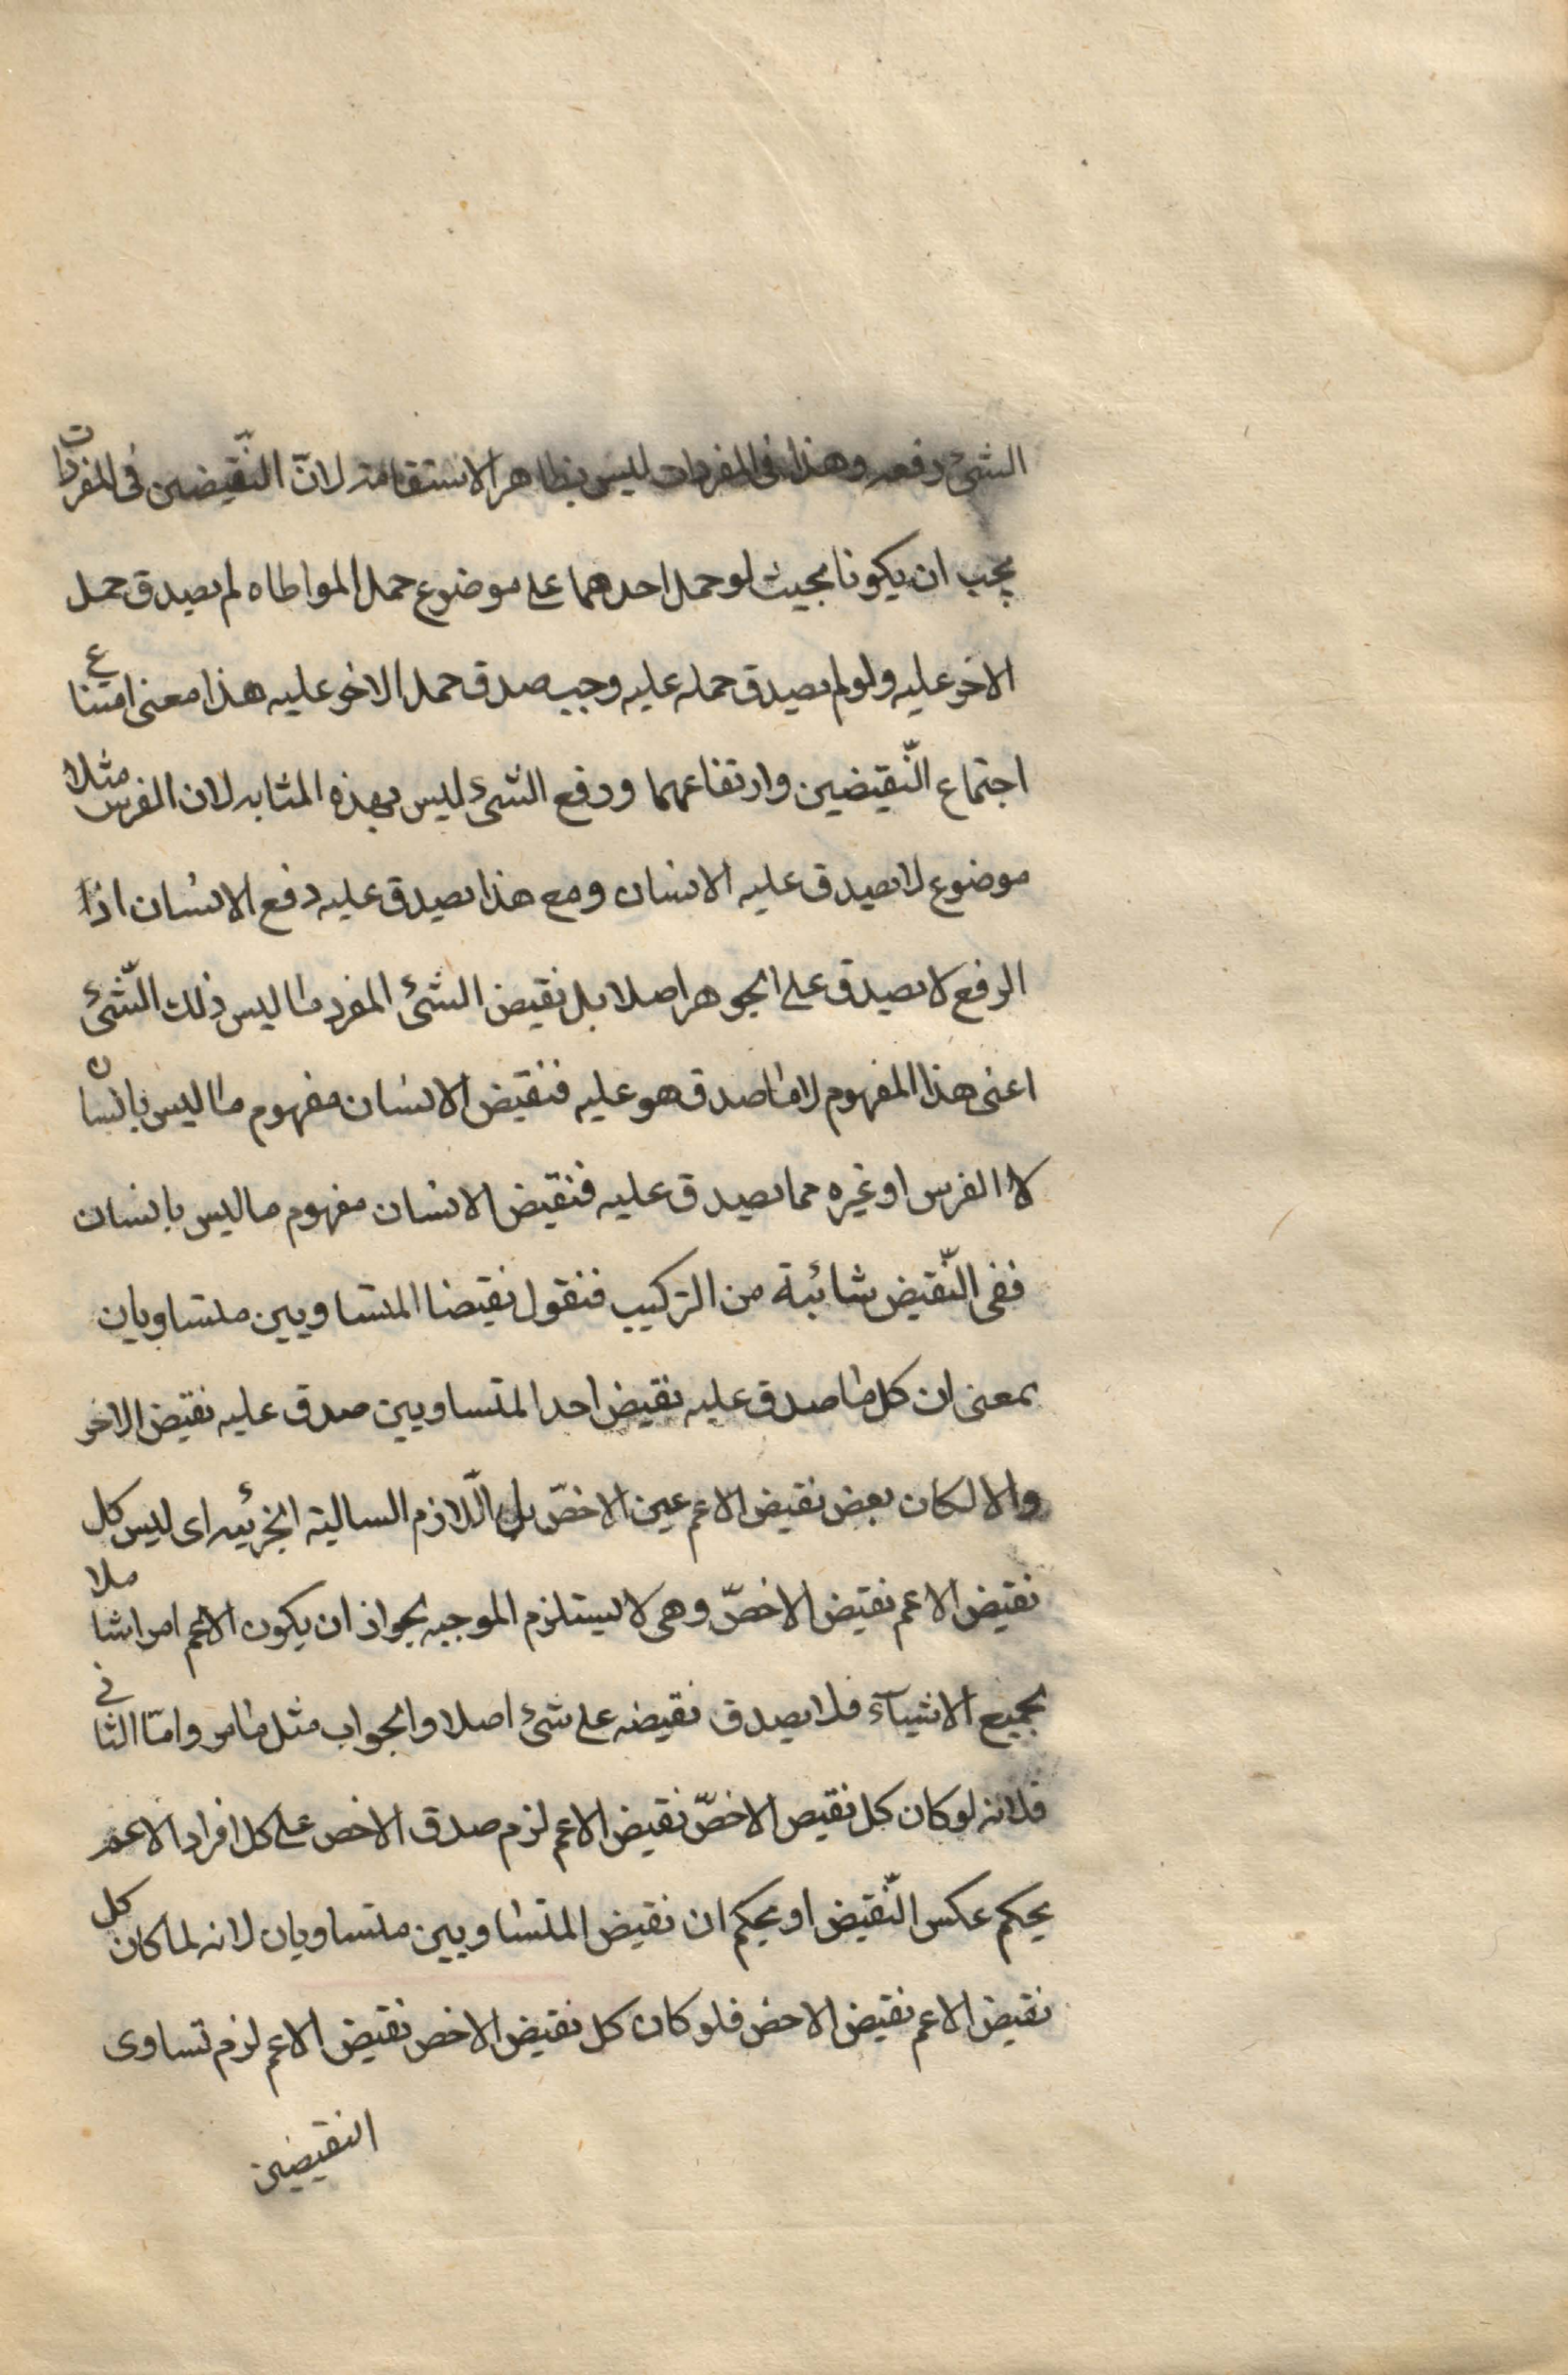 الشئ رفعه وهذا فى المفردات ليس بظاهر الاستقامة لانّ النّقيضين فى المفردات
يجب ان يكونا بحيث لو حمل احدهما على موضوع حمل المواطاه لم يصدق حمل
الاخر عليه ولو لم يصدق حمله عليه وجب صدق حمل الاخر عليه هذا معنى امتناع
اجتماع النّقيضين وارتفاعهما ورفع الشئ ليس بهذه المثابه لان الفرس مثلا
موضوع لا يصدق عليه الانسان ومع هذا يصدق عليه رفع الانسان اذا
الرفع لا يصدق على الجوهر اصلا بل نقيض الشئ المفرد ما ليس ذلك الشّئ
اعنى هذا المفهوم لا ما صدق هو عليه فنقيض الانسان مفهوم ما ليس بانسان
لا الفرس او غيره مما يصدق عليه فنقيض الانسان مفهوم ما ليس بانسان
ففى النّقيض شائبة من التركيب فنقول نقيضا المتساويين متساويان
بمعنى ان كل ما صدق عليه نقيض احد المتساويين صدق عليه نقيض الاخر
والا لكان بعض نقيض الاعم عين الاخصّ بل اللّازم السالبة الجزئيه اى ليس كل
نقيض الاعم نقيض الاخصّ وهى لا يستلزم الموجبه لجواز ان يكون الاعم امرا شاملا
لجميع الاشيآء فلا يصدق نقيضه على شئ اصلا والجواب مثل ما مر وامّا الثانى
فلانه لو كان كل نقيض الاخصّ نقيض الاعم لزم صدق الاخص على كل افراد الاعم
بحكم عكس النّقيض او بحكم ان نقيض المتساويين متساويان لانه لما كان كل
نقيض الاعم نقيض الاخص فلو كان كل نقيض الاخص نقيض الاعم لزم تساوى
النقيضين